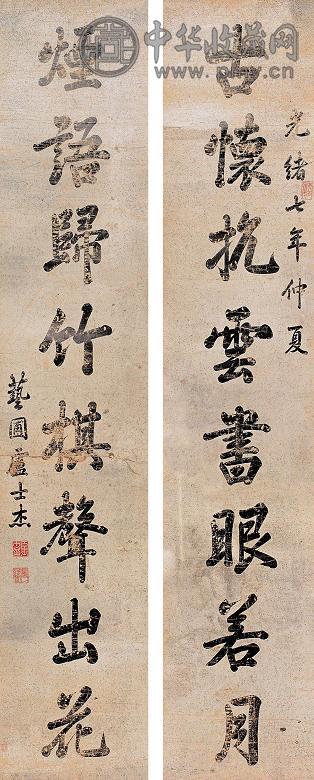 中华收藏网
www.pmcv.cn
光緒七年仲夏
古懷抗雲書眼若月
煙語歸竹棋聲出花
藝圃盧士杰